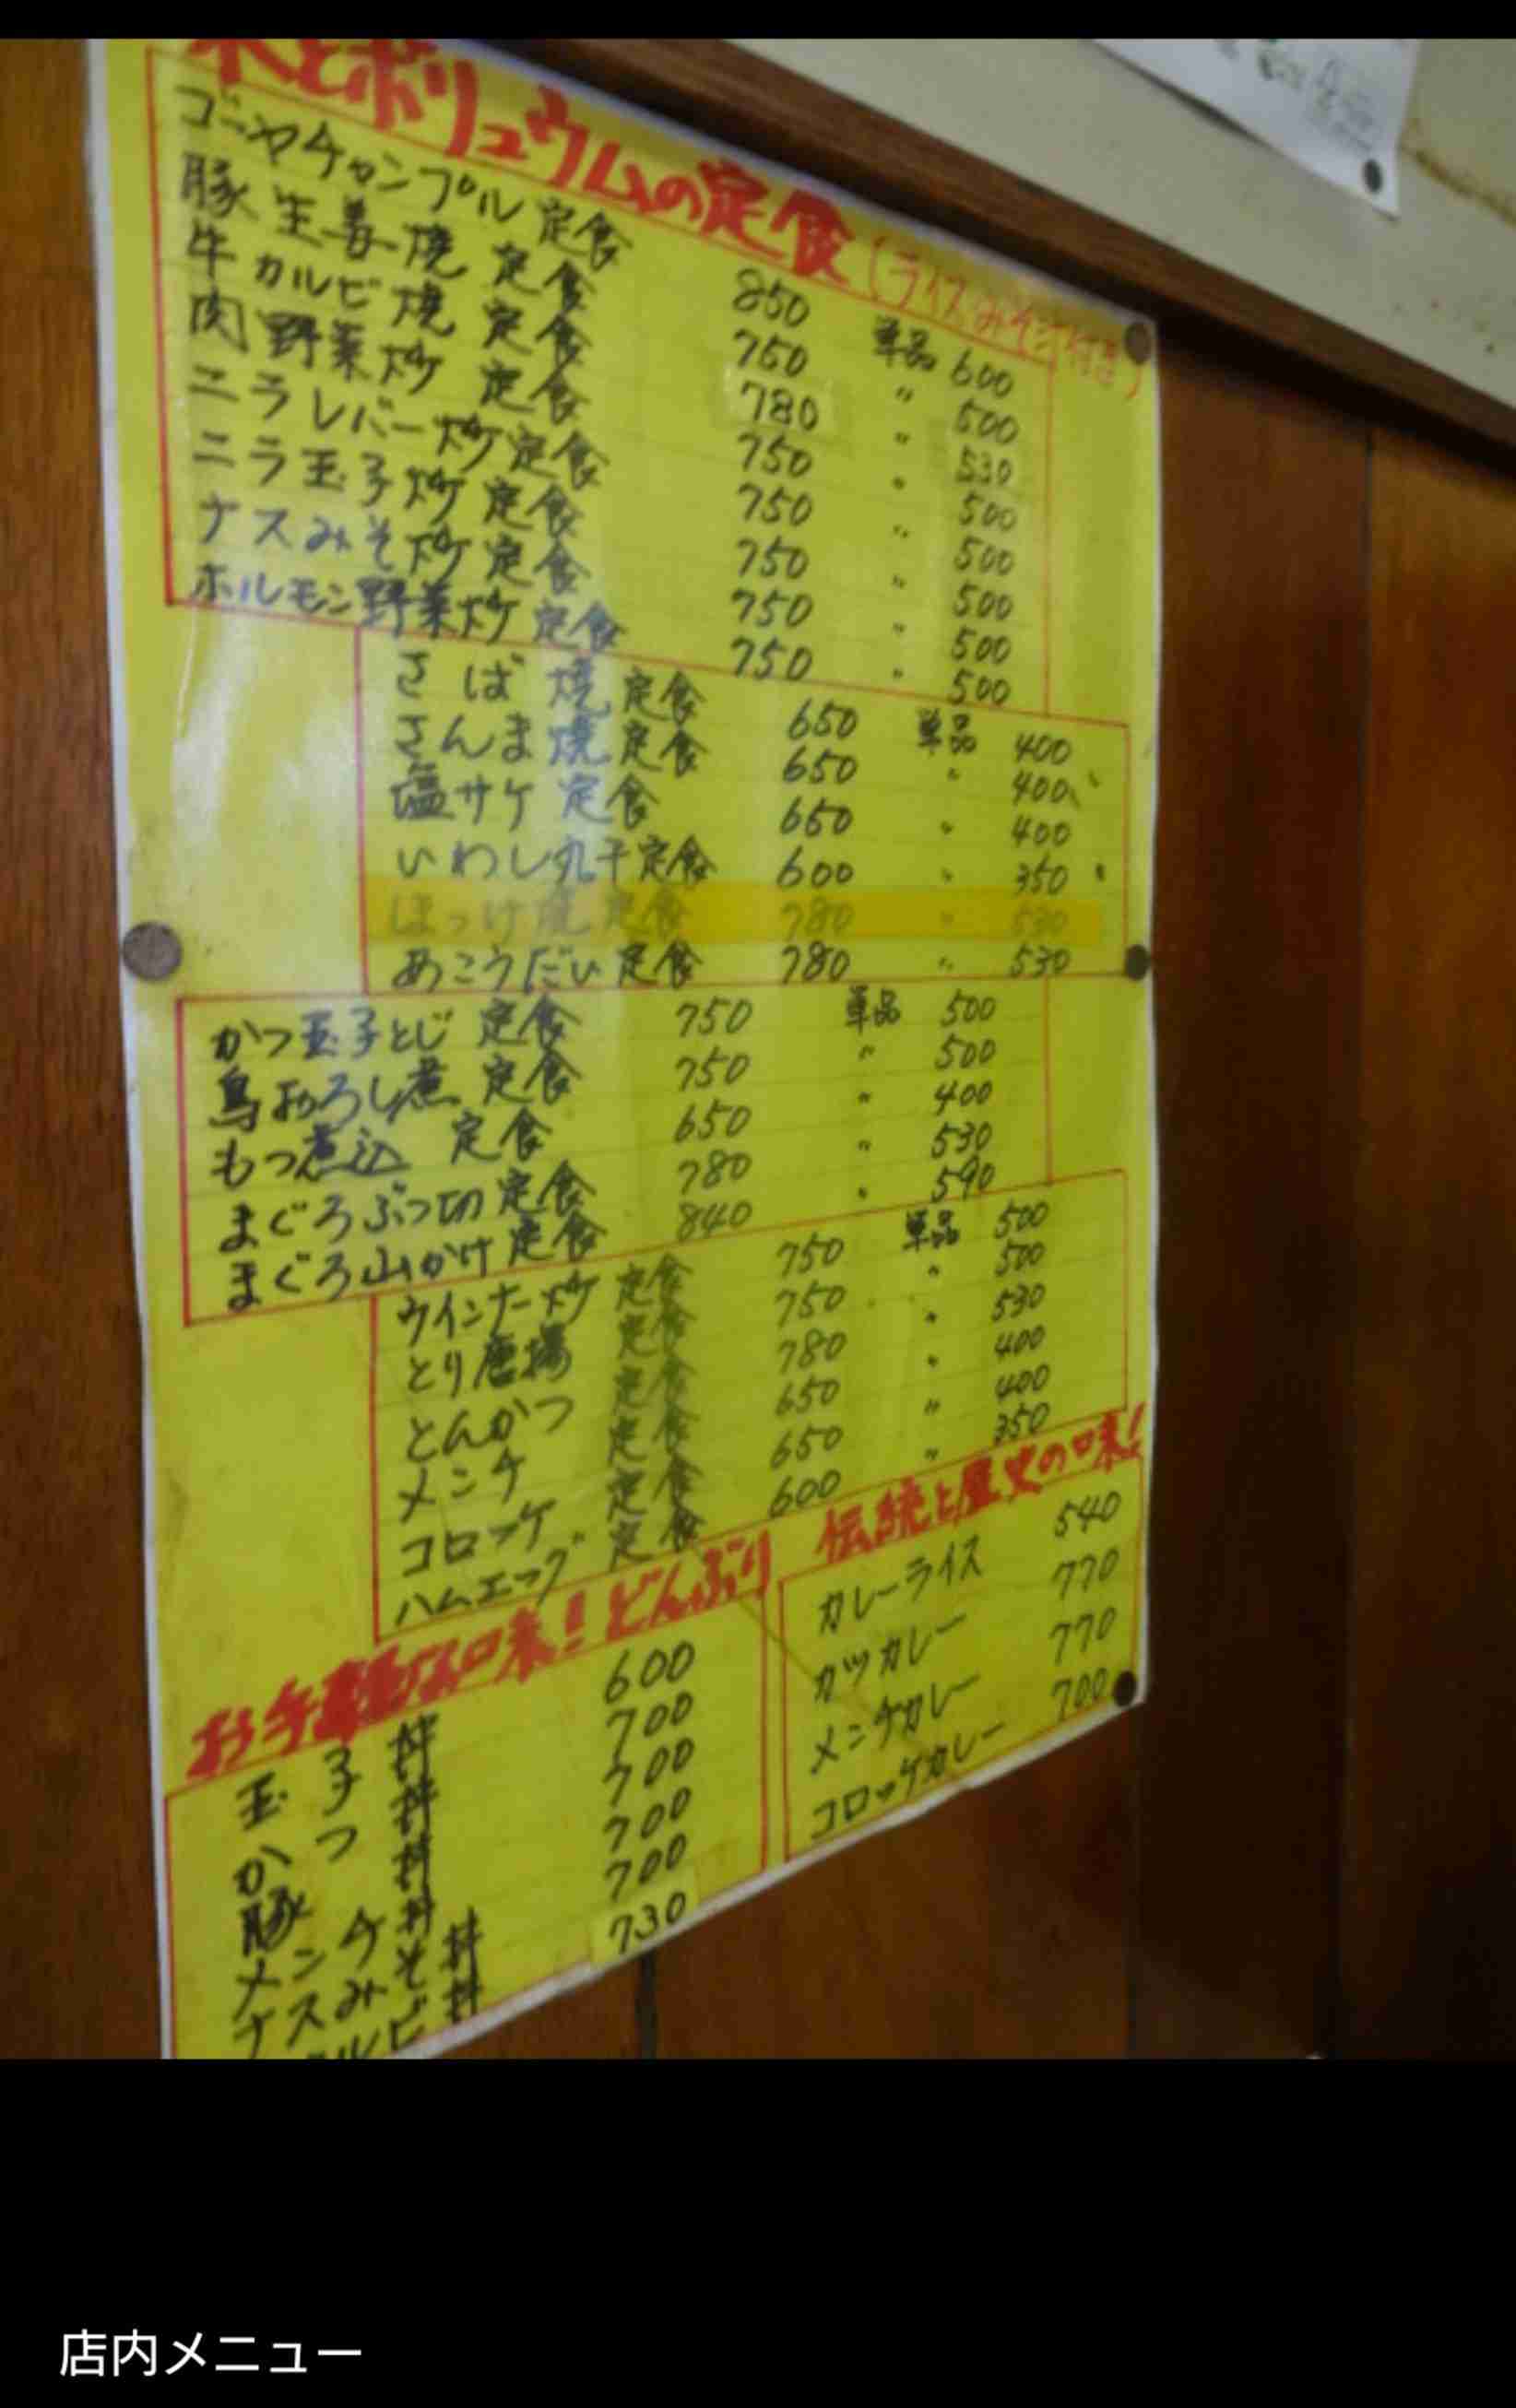 味とボリュウムの定食(ライスみそ汁付き)
ゴーヤチャンプル定食 850 単品 600
豚生姜焼定食 750 〃 500
牛カルビ焼定食 780 〃 530
肉野菜炒定食 750 〃 500
ニラレバー炒定食 750 〃 500
ニラ玉子炒定食 750 〃 500
ナスみそ炒定食 750 〃 500
ホルモン野菜炒定食 750 〃 500
さば焼定食 650 単品 400
さんま焼定食 650 〃 400
塩サケ定食 650 〃 400
いわし丸干定食 600 〃 350
ほっけ焼定食 780 〃 530
あこうだい定食 780 〃 530
かつ玉子とじ定食 750 単品 500
鳥おろし煮定食 750 〃 500
もつ煮込定食 650 〃 400
まぐろぶつ切定食 780 〃 530
まぐろ山かけ定食 840 〃 590
ウインナー炒定食 750 単品 500
とり唐揚定食 750 〃 500
とんかつ定食 780 〃 530
メンチ定食 650 〃 400
コロッケ定食 650 〃 400
ハムエッグ定食 600 〃 350
お手軽な味!どんぶり
玉子丼 600
かつ丼 700
豚丼 700
メンチ丼 700
ナスみそ丼 700
カルビ丼 730
伝統と歴史の味!
カレーライス 540
カツカレー 770
メンチカレー 770
コロッケカレー 700
店内メニュー